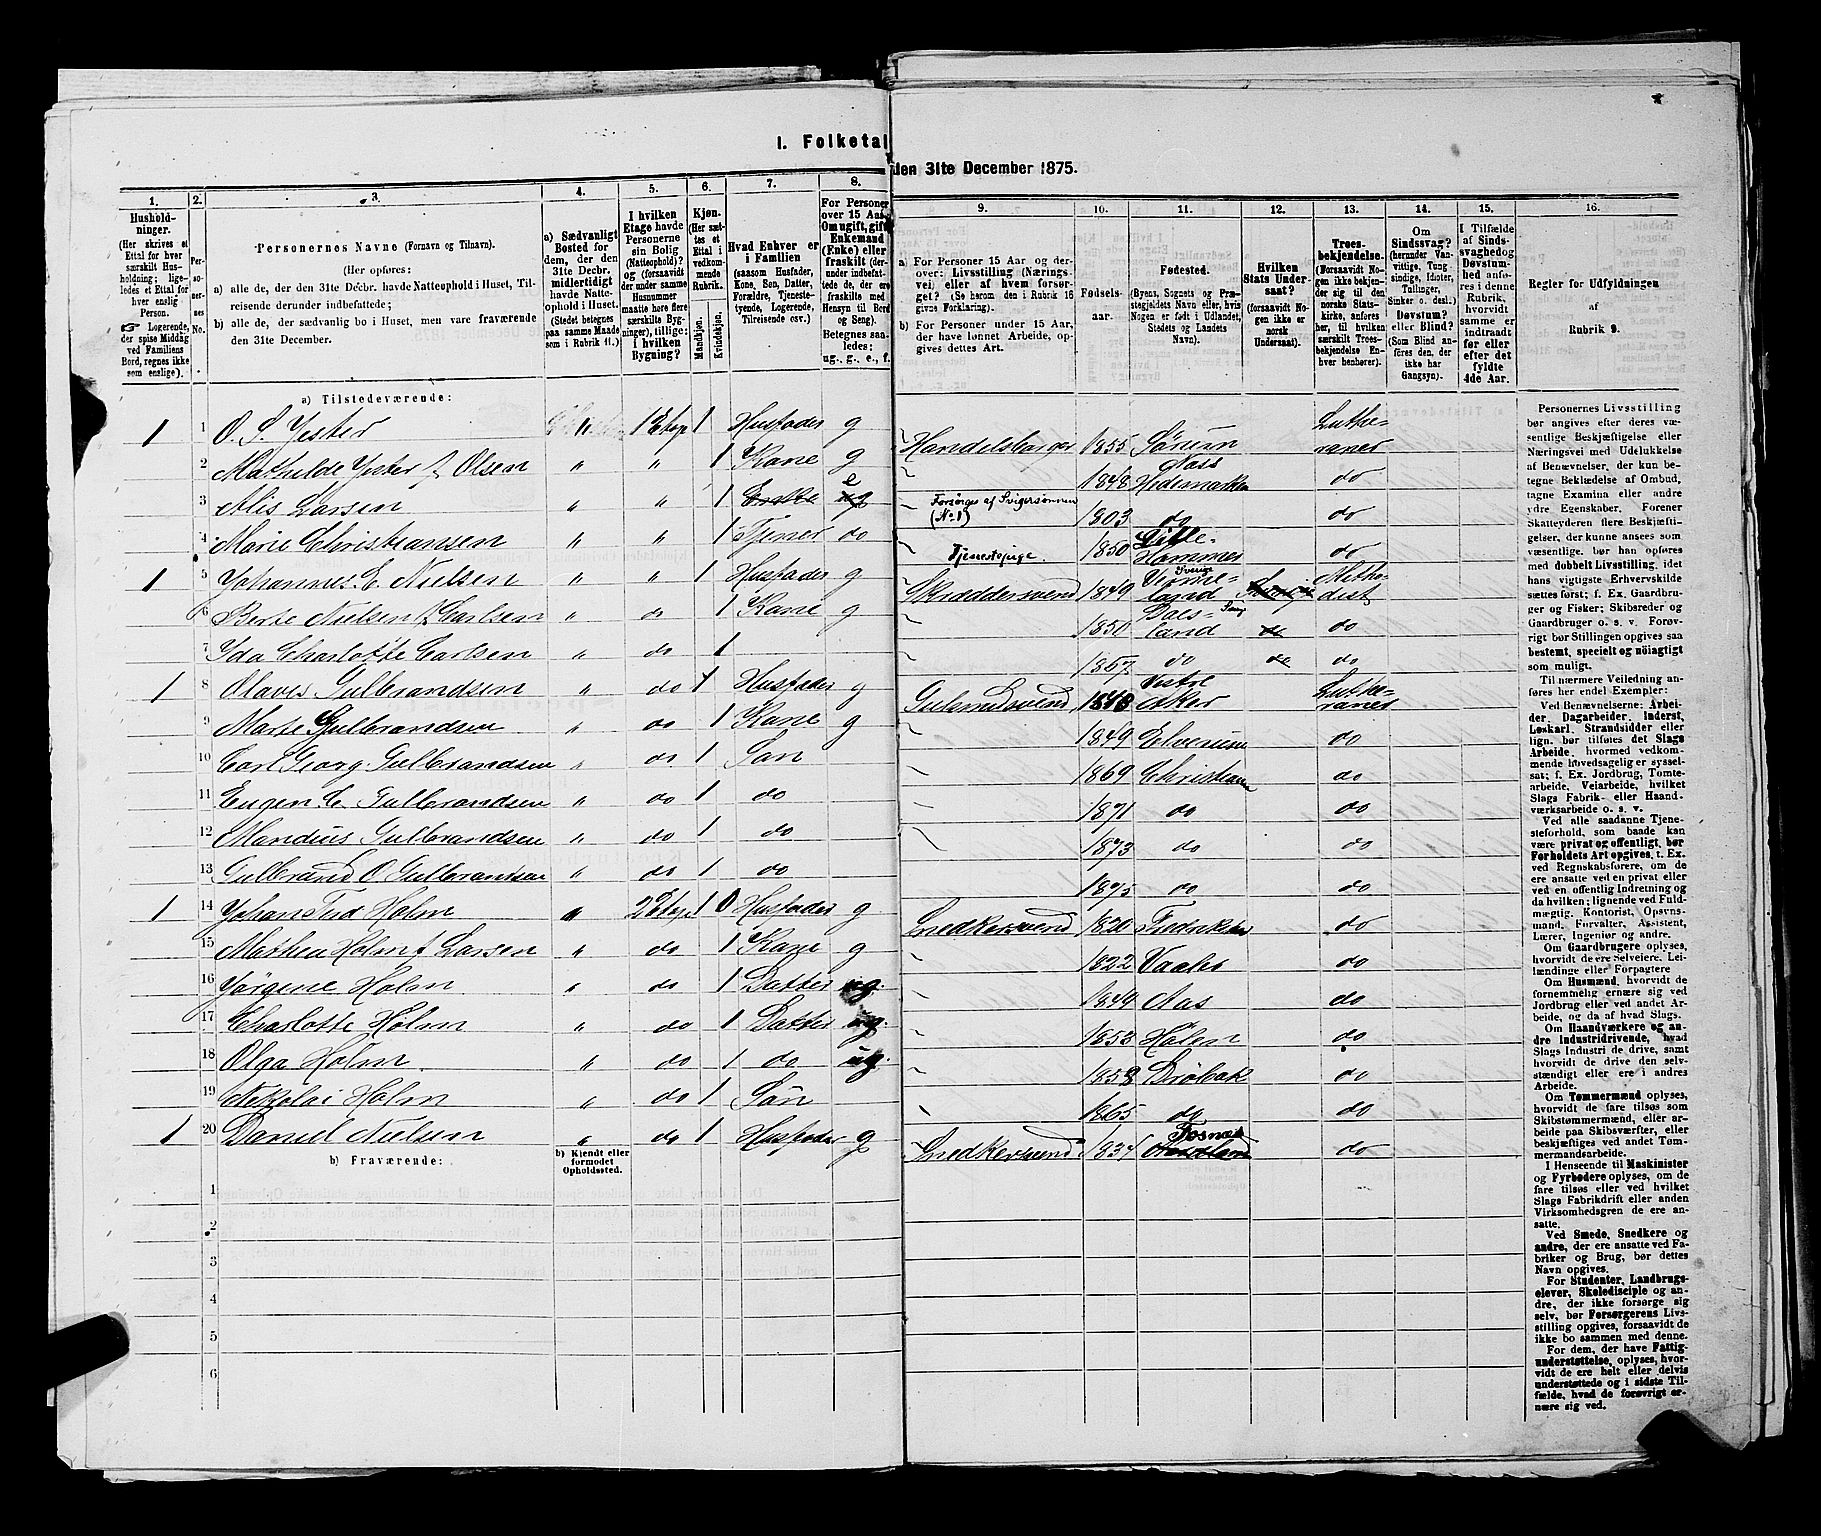 I. Folketal den 31te December 1875.
1. 2. 3. 4. 5. 6. 7. 8. 9. 10. 11. 12. 13. 14. 15. 16.
Hushold-
ninger.
(Her skrives et
Ettal for hver
særskilt Hus-
holdning; lige-
ledes et Ettal for
hver enslig
Person.
Logerende,
der spise Middag
ved Familiens
Bord, regnes ikke
som enslige).
Per-
so-
ner-
nes
No.
Personernes Navne (Fornavn og Tilnavn).
(Her opføres:
a) alle de, der den 31te Decbr. havde Natteophold i Huset, Til-
reisende derunder indbefattede;
b) alle de, der sædvanlig bo i Huset, men vare fraværende
den 31te December.
a) Sædvanligt
Bosted for
dem, der den
31te Decbr.
midlertidigt
havde Natte-
ophold i Huset.
(Stedet betegnes
paa samme Maade
som i Rubrik 11.)
I hvilken
Etage havde
Personerne
sin Bolig
(Natteophold)?
og (forsaavidt
der under samme
Husnummer
maatte høre flere
særskilte Byg-
ninger), tillige:
i hvilken
Bygning?
Kjøn.
(Her sæt-
tes et
Ettal i
vedkom-
mende
Rubrik.
Mandkjøn.
Kvindekjøn.
Hvad Enhver er
i Familien
(saasom Husfader,
Kone, Søn, Datter,
Forældre, Tjeneste-
tyende, Logerende,
Tilreisende osv.)
For Personer
over 15 Aar
Om ugift, gift
Enkemand
(Enke) eller
fraskilt (der-
under indbefat-
tede de, der ere
fraskilte med
Hensyn til Bord
og Seng).
Betegnes saa-
ledes:
ug., g., e., f.
a) For Personer 15 Aar og der-
over: Livsstilling (Nærings-
vei) eller af hvem forsør-
get? (Se herom den i Rubrik 16
givne Forklaring).
b) For Personer under 15 Aar,
der have lønnet Arbeide, op-
gives dettes Art.
Fødsels-
aar.
Fødested.
(Byens, Sognets og Præ-
stegjeldets Navn eller, hvis
Nogen er født i Udlandet,
Stedets og Landets
Navn).
Hvilken
Stats Under-
saat?
(forsaavidt No-
gen ikke er
norsk
Undersaat).
Troes-
bekjendelse.
(Forsaavidt No-
gen ikke bekjen-
der sig til den
norske Stats-
kirke, anføres
her, til hvilken
særskilt Troes-
bekjendelse En-
hver henhører).
Om
Sindssvag?
(herunder Van-
vittige, Tung-
sindige, Idioter,
Tullinger,
Sinker o. desl.)
Døvstum?
eller Blind?
(Som Blind an-
føres den, der
ikke har
Gangsyn).
I Tilfælde
af Sinds-
svaghed og
Døvstum-
hed anfø-
res i denne
Rubrik,
hvorvidt
samme er
indtraadt
før eller
efter det
fyldte
4de Aar.
Regler for Udfyldningen
af
Rubrik 9.
a) Tilstedeværende:
1 1 O. S. Yster " 1 Etage 1 Husfader g Handelsborger 1855 Sörum Luthe-
raner
2 Mathilde Yster f Olsen " " 1 Kone g 1848 Næs Hedemarken do
3 Alis Larsen " " 1 Enke e Forsørges af Svigersønnen
(No 1) 1803 do do
4 Marie Christiansen " " 1 Tjener do Tjenestepige. 1850 Lille-
Hammer do
1 5 Johannes E. Nielsen " " 1 Husfader g Skræddersvend 1849 Verme-
land Sverige Metho-
dist
6 Berte Nielsen f Carlsen " do 1 Kone g 1850 Dals-
land do do
7 Ida Charlotte Carlsen " do 1 1867 do do do
1 8 Olaves Gulbrandsen " do 1 Husfader g Gulsmedsvend 1848 Vestre
Aker Luthe-
raner
9 Marte Gulbrandsen " do 1 Kone g 1849 Elverum do
10 Carl Georg Gulbrandsen " do 1 Søn 1869 Christian do
11 Eugen C. Gulbrandsen " do 1 do 1871 do do
12 Mandius Gulbrandsen " do 1 do 1873 do do
13 Gulbrand O Gulbrandsen " do 1 do 1875 do do
1 14 Johan Holm " 2 Etage 1 Husfader g Snedkersvend 1820 do
15 Mathea Holm f Larsen " do 1 Kone g 1822 Vaaler do
16 Jörgene Holm " do 1 Datter ug. 1849 Aas do
17 Charlotte Holm " do 1 Datter ug. 1853 Hølen do
18 Olga Holm " do 1 do ug. 1858 Drøbak do
19 Nikolai Holm " do 1 Søn 1865 do do
1 20 Daniel Nielsen " do 1 Husfader g Snedkersvend 1837 Fosnæs do
b) Fraværende:
b) Kjendt eller
formodet
Opholdssted.
1
2
3
4
5
6
Personernes Livsstilling
bør angives efter deres væ-
sentlige Beskjæftigelse eller
Næringsvei med Udelukkelse
af Benævnelser, der kun be-
tegne Beklædelse af Ombud,
tagne Examina eller andre
ydre Egenskaber. Forener
Skatteyderen flere Beskjæfti-
gelser, der kunne ansees som
væsentlige, bør han opføres
med dobbelt Livsstilling, idet
hans vigtigste Erhvervskilde
sættes først; f. Ex. Gaardbru-
ger og Fisker; Skibsreder og
Gaardbruger o. s. v. Forøv-
rigt bør Stillingen opgives saa
bestemt, specielt og nøiagtigt
som muligt.
Til nærmere Veiledning an-
føres her endel Exempler:
Ved Benævnelserne: Arbei-
der, Dagarbeider, Inderst,
Løskarl, Strandsidder eller
lign. bør tilføies det Slags
Arbeide, hvormed vedkom-
mende hovedsagelig er syssel-
sat; f. Ex. Jordbrug, Tomte-
arbeide, Veiarbeide, hvilket
Slags Fabrik- eller Haand-
værksarbeide o. s. v.
Ved alle saadanne Tjene-
steforhold, som baade kan
være privat og offentligt, bør
Forholdets Art opgives, t. Ex.
ved Regnskabsførere, om de
ere ansatte ved en privat eller
ved en offentlig Indretning og
da hvilken; lignende ved Fuld-
mægtig, Kontorist, Opsyns-
mand, Forvalter, Assistent,
Lærer, Ingeniør og andre.
Om Gaardbrugere oplyses,
hvorvidt de ere Selveiere, Lei-
lændinge eller Forpagtere
Om Husmænd, hvorvidt de
fornemmelig ernære sig ved
Jordbrug eller ved andet Ar-
beide, og da af hvad Slags.
Om Haandværkere og an-
dre Industridrivende, hvad
Slags Industri de drive, samt
hvorvidt de drive den selv-
stændigt eller ere i andres
Arbeide.
Om Tømmermænd oplyses,
hvorvidt de fare tilsøs som
Skibstømmermænd, eller ar-
beide paa Skibsværfter, eller
beskjæftiges ved andet Tøm-
mermandsarbeide.
I Henseende til Maskinister
og Fyrbødere oplyses, om de
fare tilsøs eller ved hvilket
Slags Fabrikdrift eller anden
Virksomhedsgren de ere an-
satte.
Ved Smede, Snedkere og
andre, der ere ansatte ved Fa-
briker og Brug, bør dettes
Navn opgives.
For Studenter, Landbrugs-
elever, Skoledisciple og an-
dre, der ikke forsørge sig
selv, bør Forsørgerens Livs-
stilling opgives, forsaavidt de
ikke bo sammen med denne.
For dem, der have Fattig-
understøttelse, oplyses, hvor-
vidt de ere helt eller delvis
understøttede og i sidste Til-
fælde, hvad de forøvrigt er-
nære sig ved.